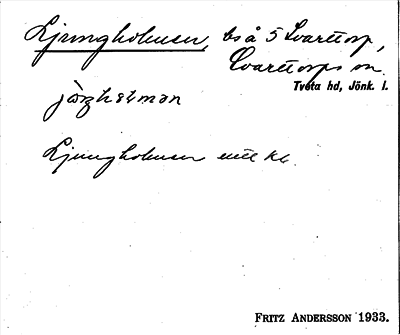 Ljungholmen, bs å 5 Svarttorp,
Svarttorps sn.
Tveta hd, Jönk. l.
Ljungholmen enl. kk.
FRITZ ANDERSSON 1933.